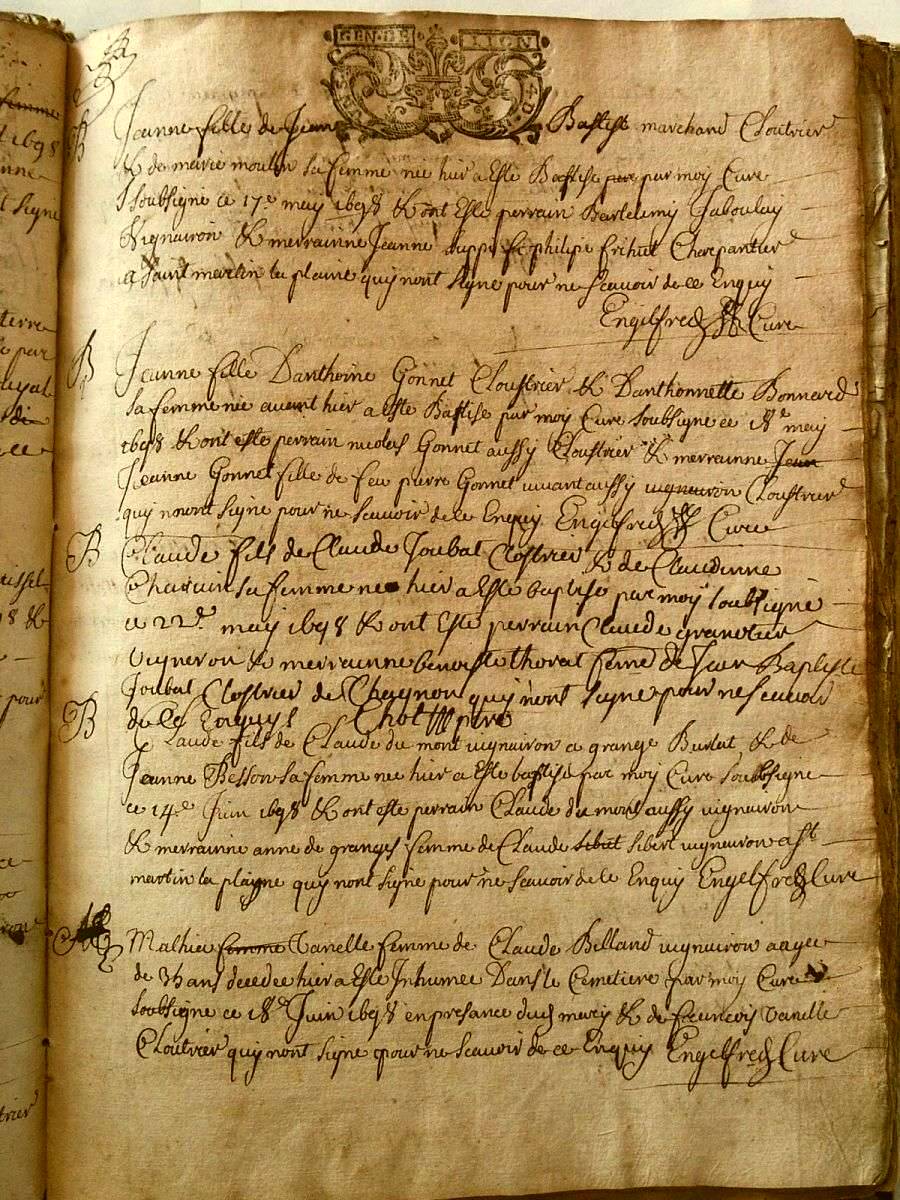 GEN·DE LION
B Jeanne fille de Jean Baptist marchand Cloutrier
& de marie moulin sa femme née hier a Esté Baptise par moy Cure
soubsigne ce 17e may 1698 & ont Este perrain Bartelemy Jaboulay
Vignairon & merrainne Jeanne philipe frihut Charpantier
a saint martin la plaine quy nont signe pour ne scavoir de ce Enquy
Engelfred Cure
B Jeanne fille Danthoine Gonnet Cloustrier & Danthonnette Bonnard
sa femme née avant hier a este Baptise par moy Cure soubsigne ce 18e may
1698 & ont este perrain nicolas Gonnet aussy Cloustrier & merrainne Jean
Jeanne Gonnet fille de feu pierre Gonnet vivant aussy vigneuron Cloustrier
quy nont signe pour ne scavoir de ce Enquy Engelfred Cure
B Claude fils de Claude Joubat Clostrier & de Claudinne
sa femme ne hier a Esté baptise par moy soubsigne
ce 22e may 1698 & ont Este perrain Claude granotier
vigneron & merrainne benoiste thorat feme de Jean Baptiste
Joubat Clostrier de Chagnon quy nont signe pour ne scavoir
de ce Enquys
B Claude fils de Claude du mont vignairon a grange Burlat & de
Jeanne Besson sa femme ne hier a Este baptise par moy Cure soubsigne
ce 14e Juin 1698 & ont este perrain Claude du mont aussy vignairon
& merrainne anne de granges femme de Claude sibert vignairon a st
martin la plaigne quy nont signe pour ne scavoir de ce Enquy Engelfred Cure
Mathia femme Vanelle femme de Claude Billand vignairon aagee
de ans decedee hier a Este Inhumee Dans le Cemetiere par moy Cure
soubsigne ce 18e Juin 1698 en presance dud mary & de francois Vanelle
Cloutrier quy nont signe pour ne scavoir de ce Enquy Engelfred Cure